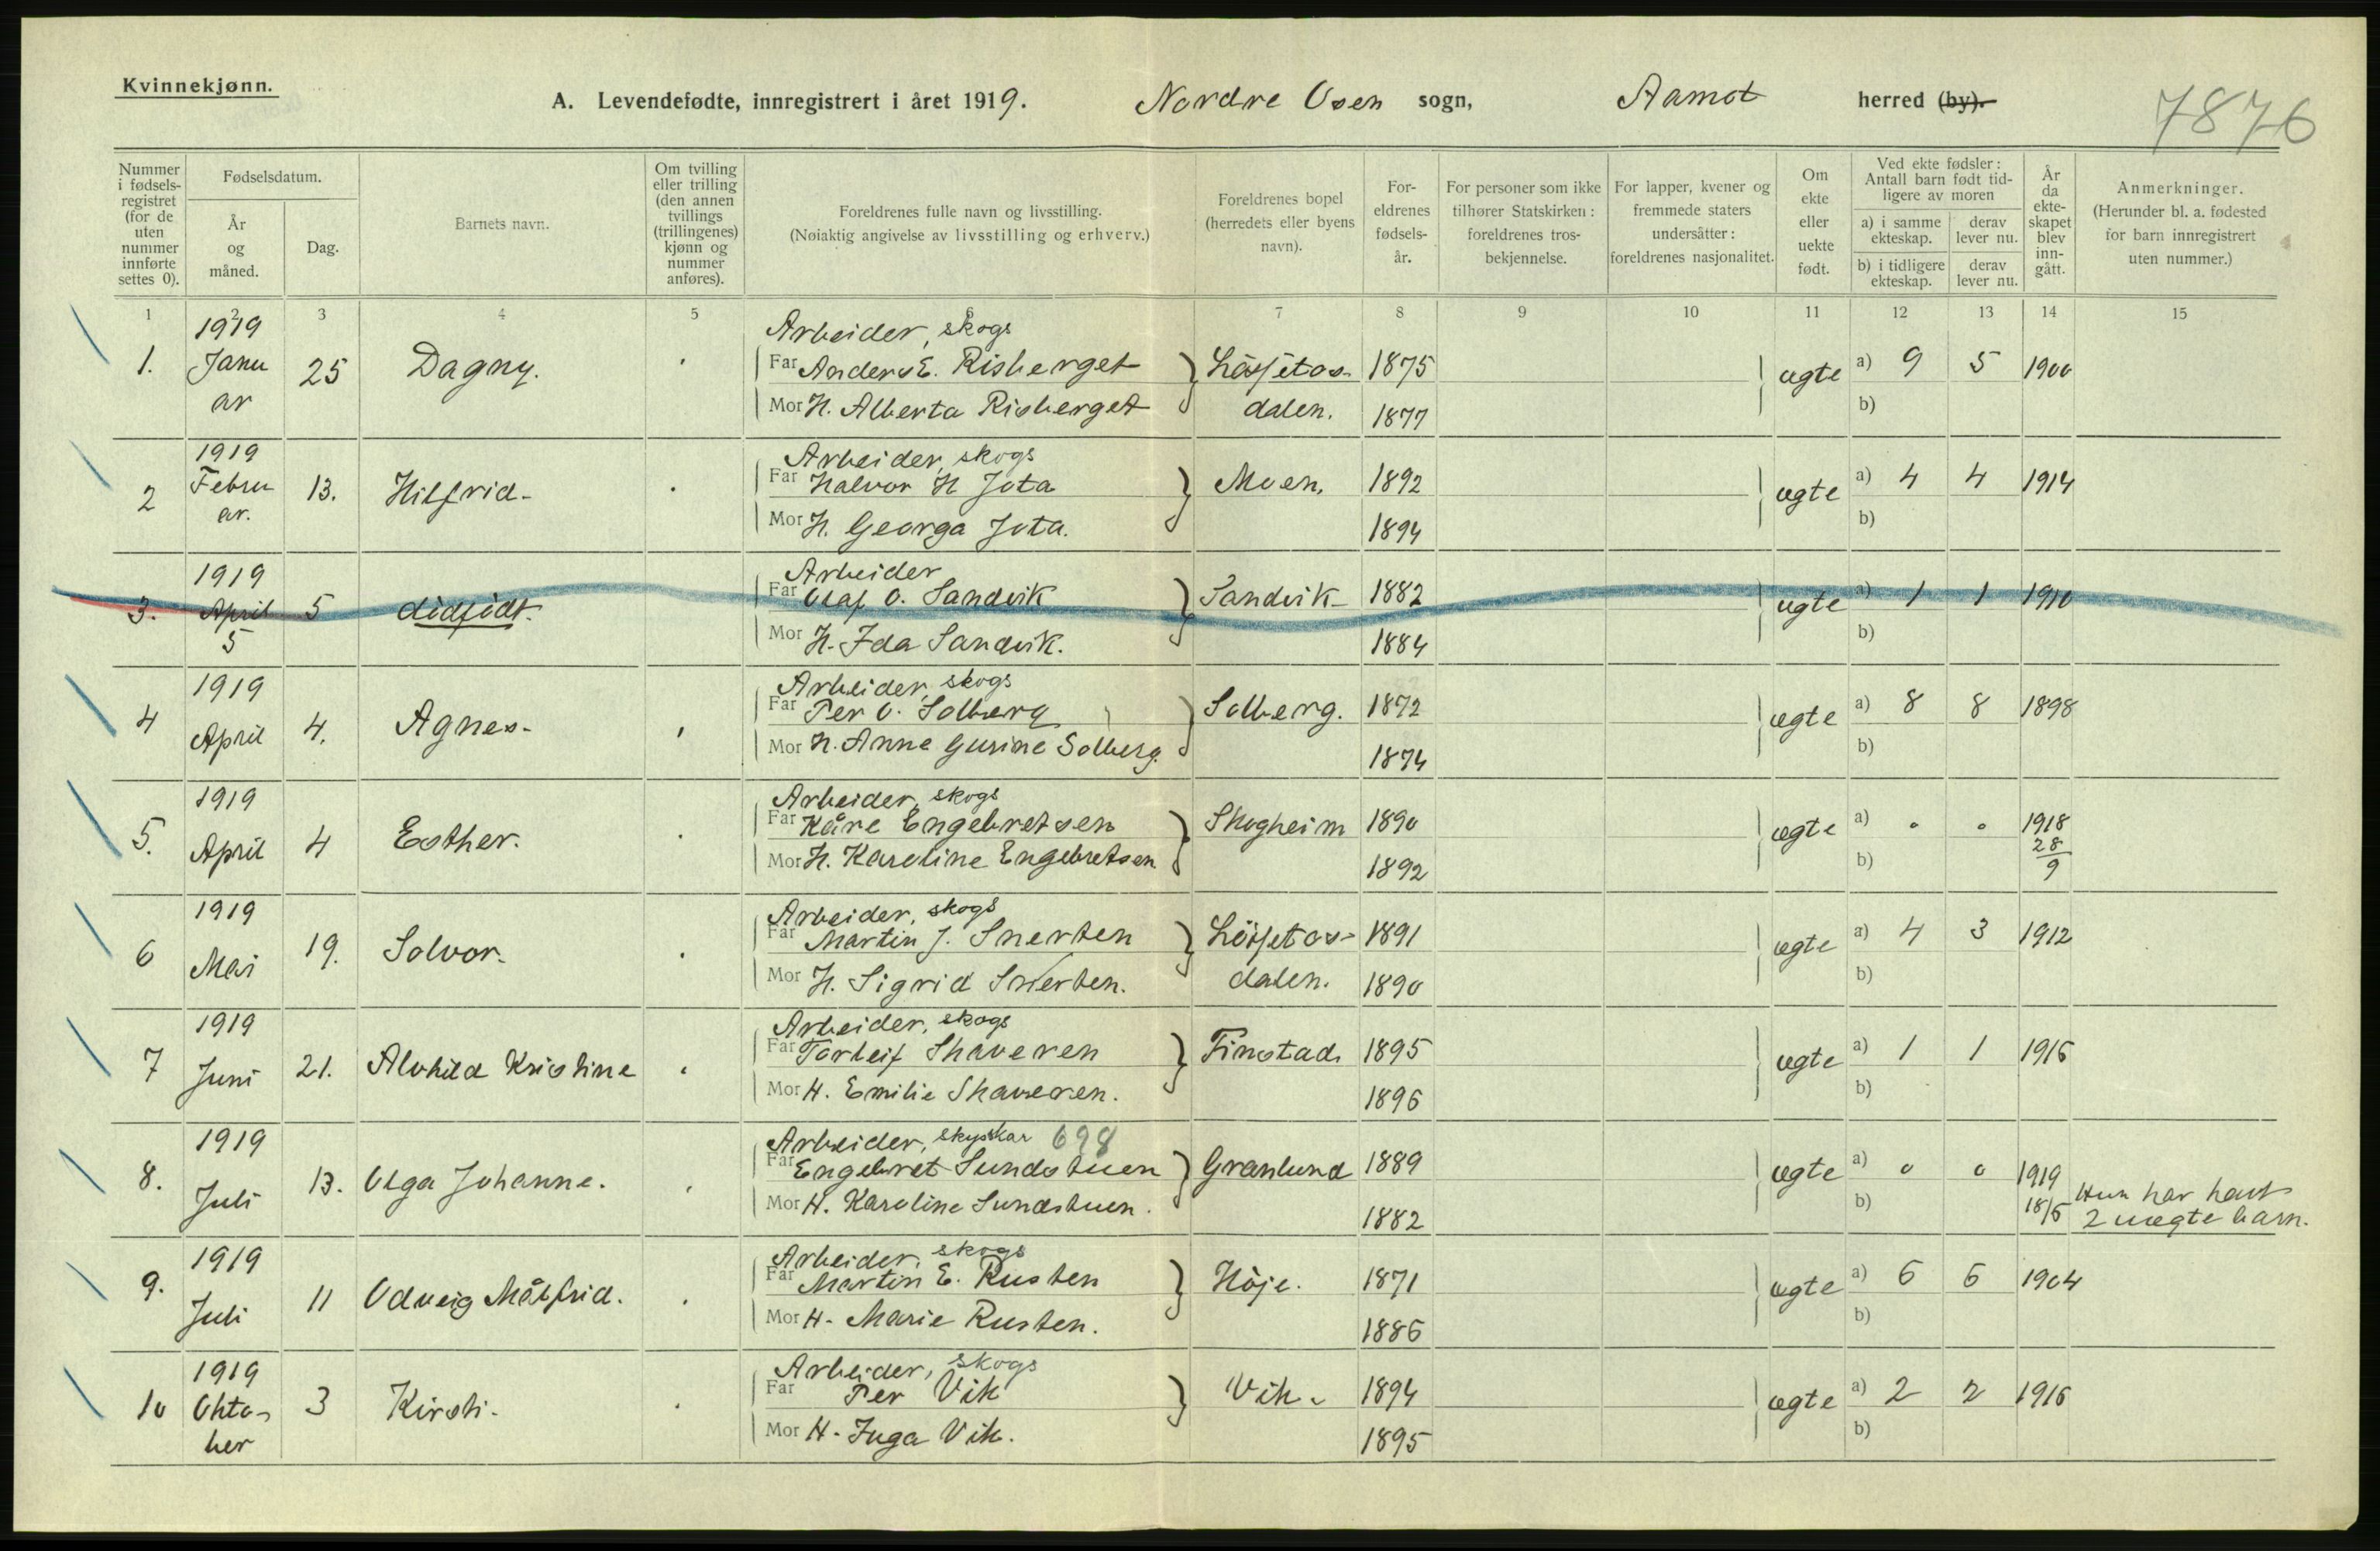 Kvinnekjønn.
A. Levendefødte, innregistrert i året 1919. Nordre Osen sogn, Aamot herred (by).
7876
Nummer i fødsels-registret (for de uten nummer innførte settes 0).
Fødselsdatum.
År og måned.
Dag.
Barnets navn.
Om tvilling eller trilling (den annen tvillings (trillingenes) kjønn og nummer anføres).
Foreldrenes fulle navn og livsstilling.
(Nøiaktig angivelse av livsstilling og erhverv.)
Foreldrenes bopel (herredets eller byens navn).
For-eldrenes fødsels-år.
For personer som ikke tilhører Statskirken: foreldrenes tros-bekjennelse.
For lapper, kvener og fremmede staters undersåtter: foreldrenes nasjonalitet.
Om ekte eller uekte født.
Ved ekte fødsler: Antall barn født tid-ligere av moren
a) i samme ekteskap. derav lever nu.
b) i tidligere ekteskap. derav lever nu.
År da ekte-skapet blev inn-gått.
Anmerkninger.
(Herunder bl. a. fødested for barn innregistrert uten nummer.)
1 2 3 4 5 6 7 8 9 10 11 12 13 14 15
1919 Arbeider, skogs
1. Janu 25 Dagny. Far Anders E. Risberget 1875 ægte a) 9 5 1900
ar Mor H. Alberta Risberget dalen. 1877 b)
1919 Arbeider, skogs
2 Febru 13. Hilfrid. Far Halvor H Jota Moen. 1892 ægte a) 4 4 1914
ar. Mor H. Georga Jota. 1894 b)
1919 Arbeider
3. April 5 dødfødt. Far Olaf O. Sandvik Sandvik 1882 ægte a) 1 1 1910
5 Mor H. Ida Sandvik. 1884 b)
1919 Arbeider, skogs
4 April 4. Agnes. Far Per O. Solberg Solberg. 1872 ægte a) 8 8 1898
Mor H. Anne Gurine Solberg. 1874 b)
1919 Arbeider, skogs
5. April 4 Esther. Far Kåre Engebretsen Skogheim 1890 ægte a) 0 0 1918
Mor H. Karoline Engebretsen 1892 b) 28/9
1919 Arbeider, skogs
6 Mai 19. Solvor. Far Martin J. Snerten 1891 ægte a) 4 3 1912
Mor H. Sigrid Snerten. dalen. 1890 b)
1919 Arbeider, skogs
7 Juni 21. Alvhild Kristine Far Torleif Skaveren Finstad 1895 ægte a) 1 1 1916
Mor H. Emilie Skaveren. 1896 b)
1919 Arbeider, skyskar 698
8. Juli 13. Olga Johanne. Far Engebret Sundstuen Granlund 1889 ægte a) 0 0 1919
Mor H. Karoline Sundstuen. 1882 b) 18/5 Hun har havt
2 uægte barn.
1919 Arbeider, skogs
9. Juli 11 Odveig Målfrid. Far Martin E. Rusten Höje. 1871 ægte a) 6 6 1904
Mor H. Marie Rusten. 1886 b)
1919 Arbeider, skogs
10 Okto- 3 Kirsti. Far Per Vik Vik. 1894 ægte a) 2 2 1916
ber Mor H. Inga Vik. 1895 b)